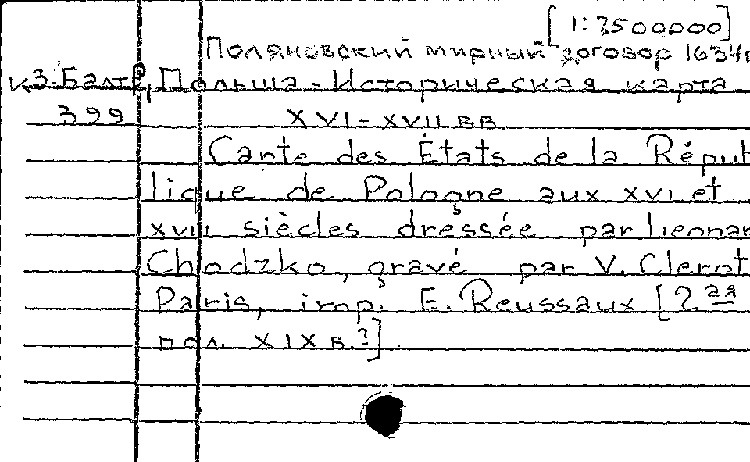 [1:7500000]
Поляновский мирный договор 1634г
К3.Балт2, Польша - Историческая карта
399 XVI-XVII вв.
Carte des États de la Répub
lique de Pologne aux XVI et
XVII siècles dressée par Leonar
Chodzko, gravé par V. Clerot
Paris, imp. E. Reussaux [2.ая
пол. XIX в.?].